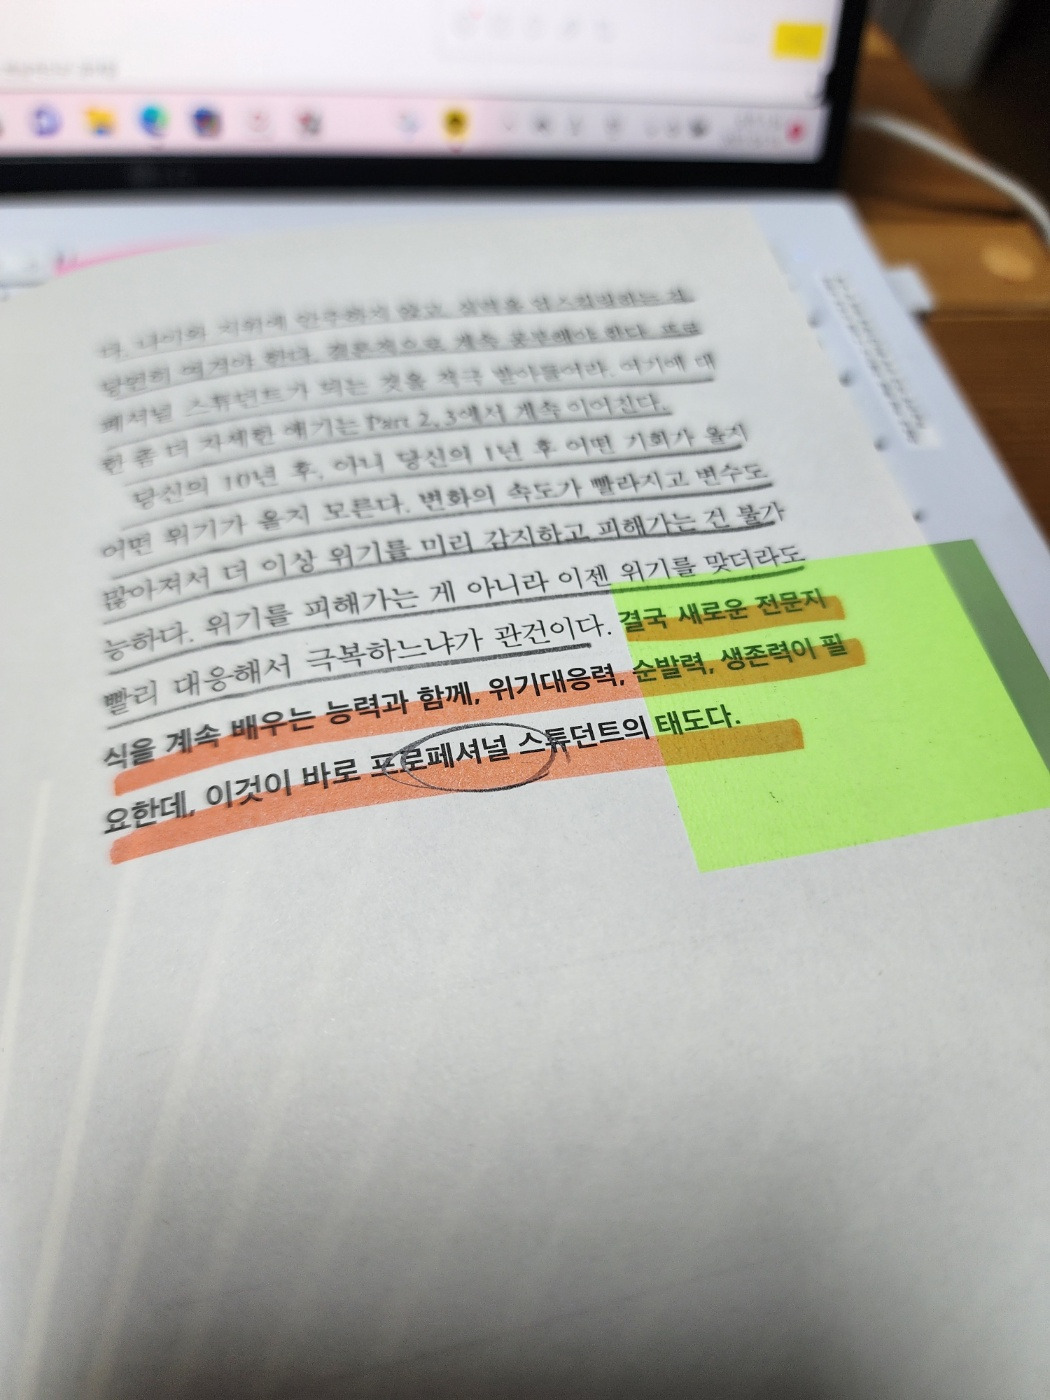 다. 나이와 지위에 안주하지 않고
당연히 여겨야 한다. 결론적으로 계속 공부해야 한다. 프로
페셔널 스튜던트가 되는 것을 적극 받아들여라. 여기에 대
한 좀 더 자세한 얘기는 Part 2, 3에서 계속 이어진다.
당신의 10년 후, 아니 당신의 1년 후 어떤 기회가 올지
어떤 위기가 올지 모른다. 변화의 속도가 빨라지고 변수도
많아져서 더 이상 위기를 미리 감지하고 피해가는 건 불가
능하다. 위기를 피해가는 게 아니라 이젠 위기를 맞더라도
빨리 대응해서 극복하느냐가 관건이다. 결국 새로운 전문지
식을 계속 배우는 능력과 함께, 위기대응력, 순발력, 생존력이 필
요한데, 이것이 바로 프로페셔널 스튜던트의 태도다.